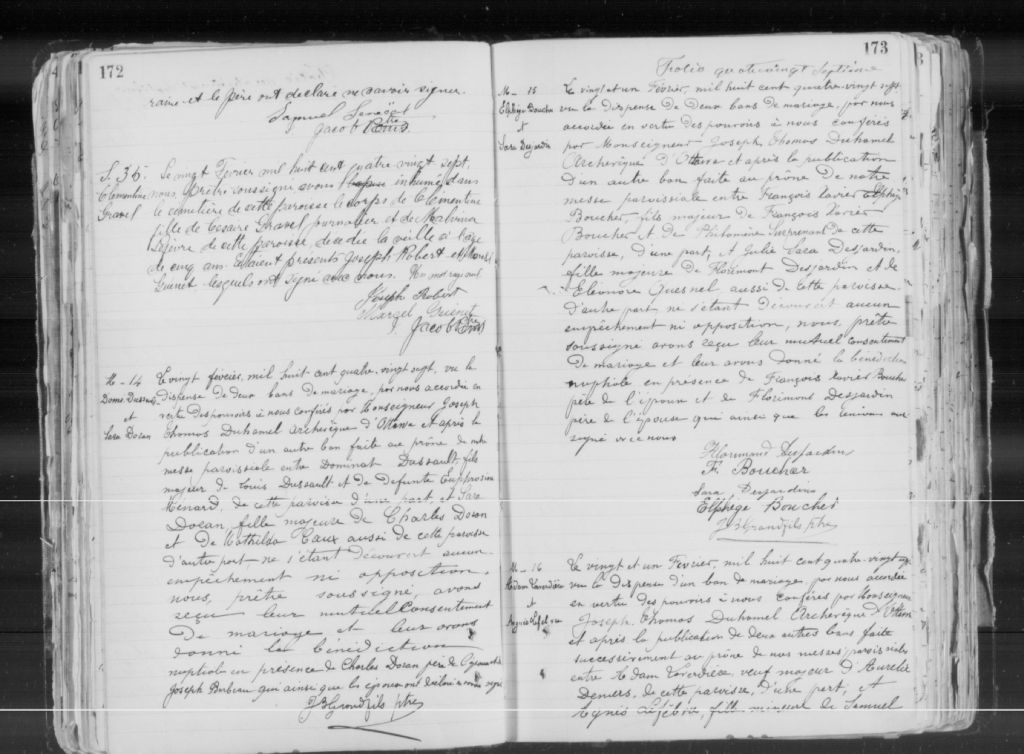 172
raine et le père ont déclaré ne savoir signer.
Samuel
Jacob Ptre
S. 35.
Clementine
Gravel
Le vingt Fevrier mil huit cent quatre vingt sept,
nous, prêtre soussigné avons inhumé dans
le cimetière de cette paroisse le corps de Clémentine
fille de Césaire Gravel journalier et de Malvina
Lefèvre de cette paroisse, décédée la veille à l'âge
de cinq ans. Etaient présents Joseph Robert et
Guenet lesquels ont signé avec nous. Un mot rayé nul
Joseph Robert
Jacob Ptre
M - 14
Domi. Dussault
et
Sara Doran
Le vingt février, mil huit-cent quatre-vingt sept, vu la
dispense de deux bans de mariage, par nous accordée en
vertu des pouvoirs à nous conférés par Monseigneur Joseph
Thomas Duhamel Archevêque d'Ottawa et après la
publication d'un autre ban faite au prône de notre
messe paroissiale entre Dominat Dussault, fils
majeur de Louis Dussault et de Defunte Euphrosine
Menard, de cette paroisse d'une part, et Sara
Doran, fille majeure de Charles Doran
et de Mathilda Caux aussi de cette paroisse
d'autre part - ne s'étant découvert aucun
empêchement ni opposition,
nous, prêtre soussigné, avons
reçu leur mutuel Consentement
de mariage et leur avons
donné la bénédiction
nuptiale en présence de Charles Doran père de l'épouse et
Joseph Barbeau qui ainsi que les époux ont déclaré ne savoir signer
JB Grandfils ptre
173
Folio quatrevingt septième
M - 15
Elphège Boucher
et
Sara Desjardin
Le vingt et un Fevrier, mil huit cent quatre-vingt sept
vu la dispense de deux bans de mariage, par nous
accordée en vertu des pouvoirs à nous conférés
par Monseigneur Joseph, Thomas Duhamel
Archevêque d'Ottawa et après la publication
d'un autre ban faite au prône de notre
messe paroissiale entre François Xavier Elphège
Boucher, fils majeur de François Xavier
Boucher et de Philomène Surprenant de cette
paroisse, d'une part, et Julie Sara Desjardin,
fille majeure de Florimont Desjardin et de
Eléonore Quesnel aussi de cette paroisse
d'autre part ne s'étant découvert aucun
empêchement ni opposition, nous, prêtre
soussigné avons reçu leur mutuel consentement
de mariage et leur avons donné la bénédiction
nuptiale en présence de François Xavier Boucher
père de l'époux et de Florimont Desjardin
père de l'épouse qui ainsi que les époux ont
signé avec nous
Florimond Desjardin
F. Boucher
Sara Desjardins
Elphège Boucher
JB Grandfils ptre
M - 16
Adam Laverdière
et
Agnès Lefebvre
Le vingt et un Fevrier, mil huit cent quatre-vingt sept
vu la dispense d'un ban de mariage par nous accordée
en vertu des pouvoirs à nous conférés par Monseigneur
Joseph, Thomas Duhamel Archevêque d'Ottawa
et après la publication de deux autres bans faite
successivement au prône de nos messes paroissiales
entre Adam Laverdière, veuf majeur d'Aurélie
Demers, de cette paroisse, d'une part, et
Agnès Lefebvre, fille mineure de Samuel